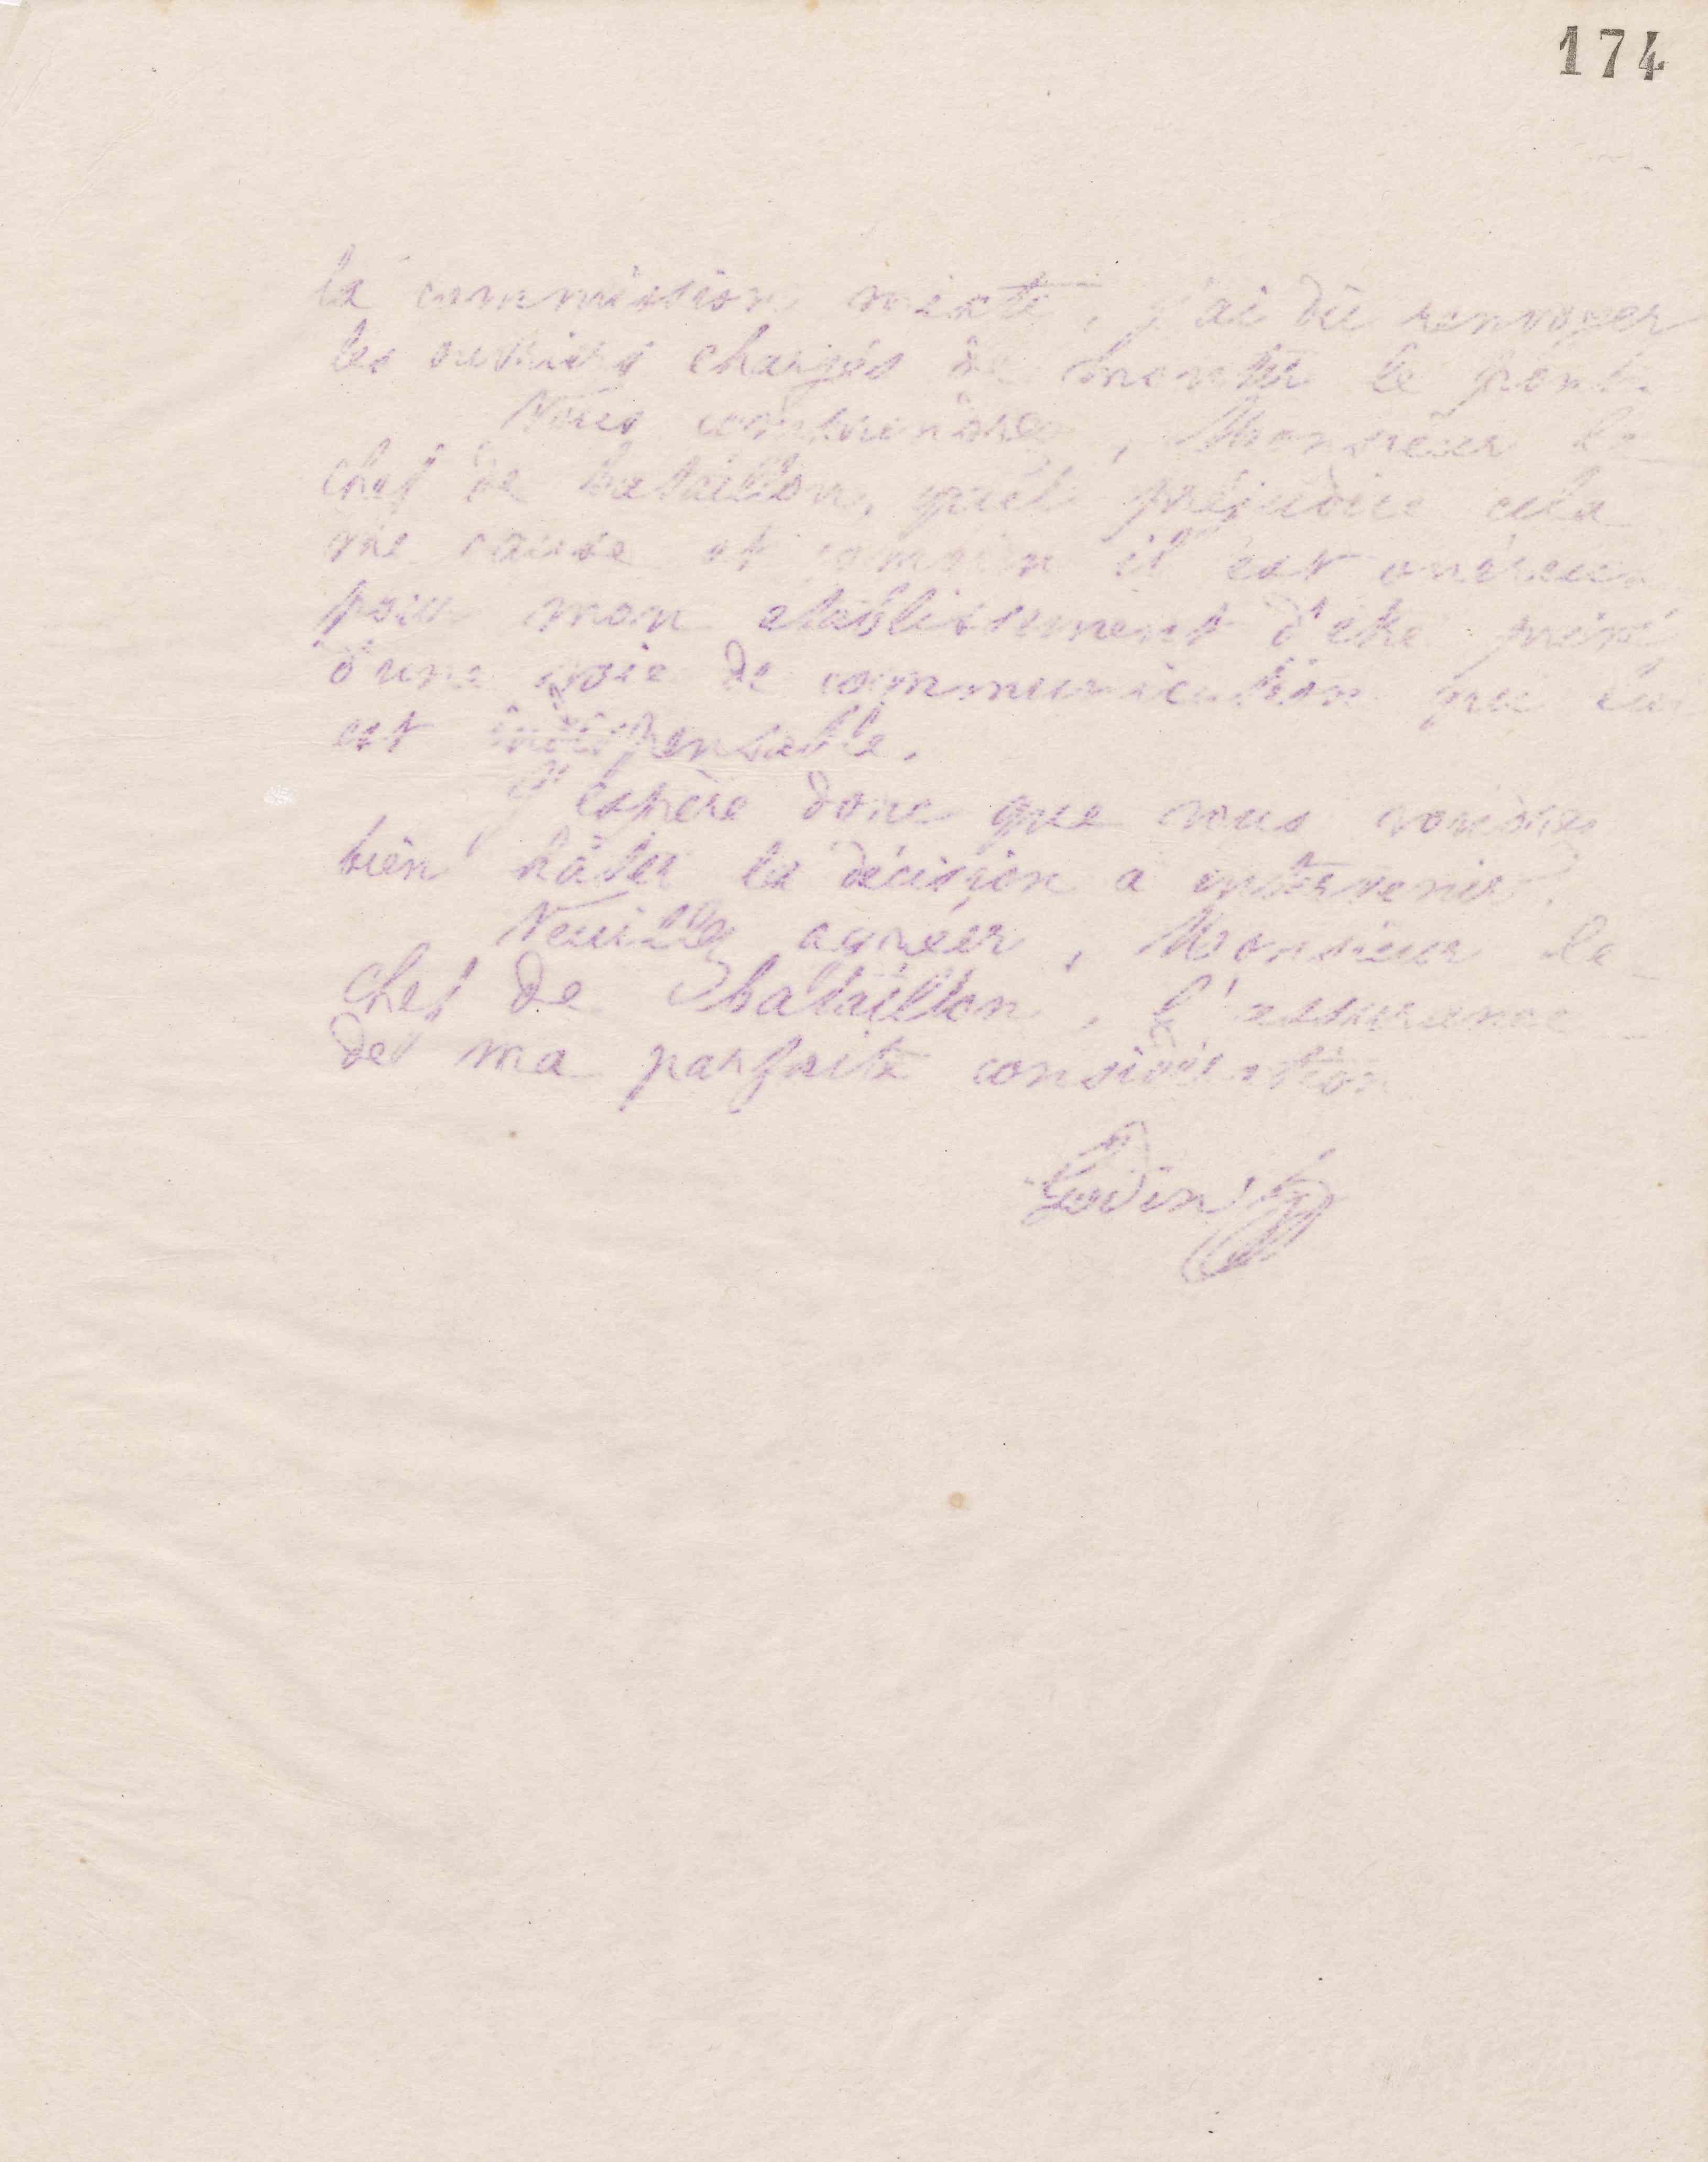 174
la commission mixte, j'ai dû renvoyer
les ouvriers chargés de monter le pont.
Vous comprendrez, Monsieur le
chef de bataillon, quel préjudice cela
me cause et combien il est onéreux
pour mon établissement d'être privé
d'une voie de communication qui lui
est indispensable.
J'espère donc que vous voudrez
bien hâter la décision a intervenir.
Veuillez agréer, Monsieur le
chef de bataillon, l'assurance
de ma parfaite considération
Godin